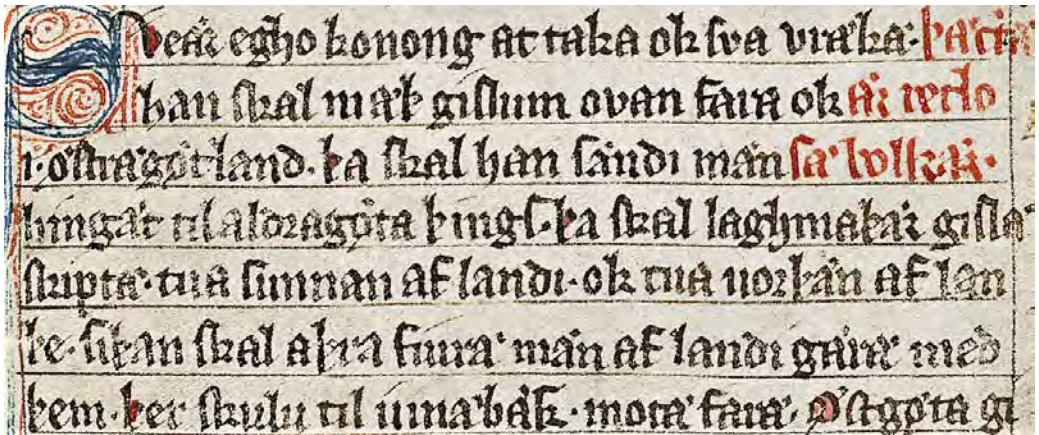 Svear egho konong at taka ok sva vrækæ. þættæ
han skal mæþ gislum ovan fara ok ær retlo
i. østrægøtland. þa skal han sændi mæn sæ bolkær.
hingæt til aldragøta þings. þa skal laghmaþær gislæ
skiptæ. tua sunnan af landi. ok tua norþan af lan
þe. siþan skal aþra fiura mæn af landi gæræ með
þem. þer skulu til iunæbæk. motæ faræ. Østgøta gi